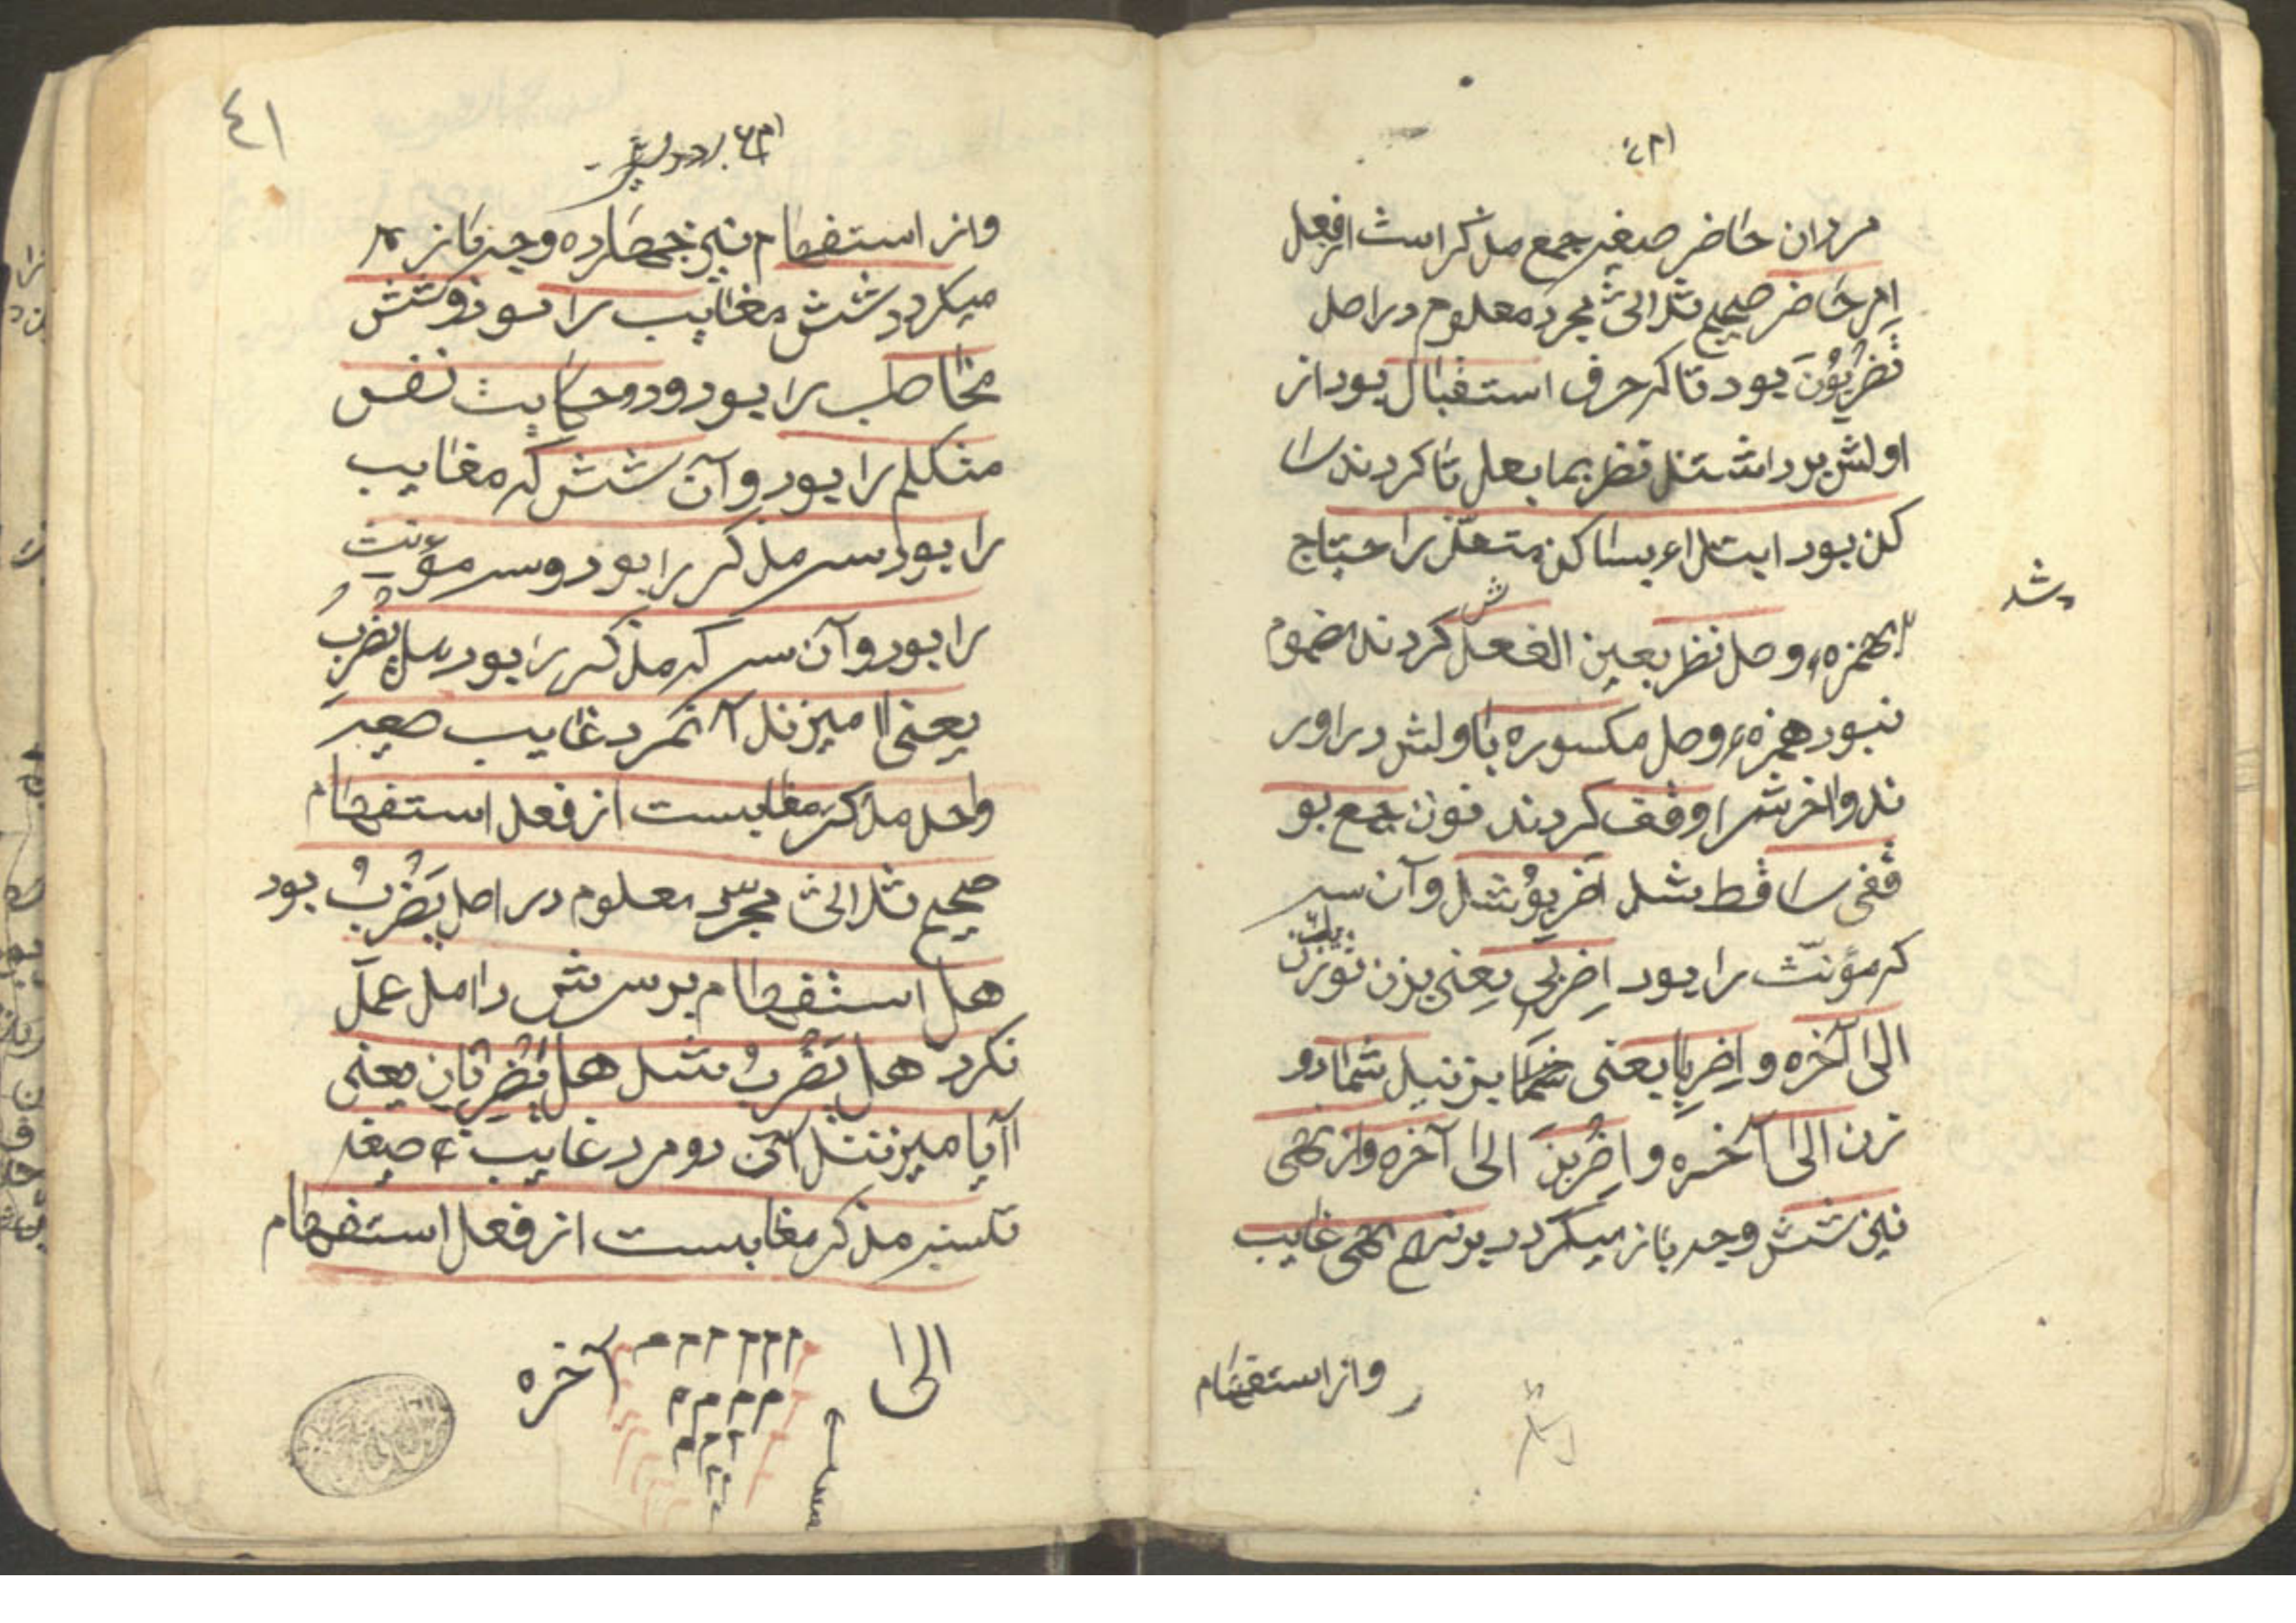 مردان حاضر صیغه جمع مذکر است از فعل
امر حاضر صحیح ثلاثی مجرد معلوم در اصل
تَضْرِبُونَ بود تا که حرف استقبال بود از
اولش برداشتند نظر بما بعد تا کردند سا
کن بود ابتداء بساکن متعذر احتیاج
شد
بهمزهٔ وصل نظر بعین الفعلش کردند مضموم
نبود همزهٔ وصل مکسوره باولش در اور
ند و اخرش را وقف کردند نون جمع بو
قفی ساقط شد اِضْرِبُو شد و آن سه
که مؤنّث را بود اِضْرِبی یعنی بزن تو یک زن
الی آخره و اِضْرِبا یعنی بزنید شما دو
زن الی آخره و اِضْرِبْنَ الی آخره و از نهی
نیز شش وجه باز میگردد نهی غایب
و از استفهام
٤١
و از استفهام نیز چهارده وجه باز
میگردد شش مغایب را بود و شش
مخاطب را بود و دو حکایت نفس
متکلم را بود و آن شش که مغایب
را بود سه مذکر را بود و سه مؤنث
را بود و آن سه که مذکر را بود هل یَضْرِبُ
یعنی ایا میزند آنمرد غایب صیغه
واحد مذکر مغایبست از فعل استفهام
صحیح ثلاثی مجرد معلوم در اصل یَضْرِبُ بود
هل استفهام برسرش دامد عمل
نکرد هل یَضْرِبُ شد هل یَضْرِبَانِ یعنی
آیا میزنند آن دو مرد غایب صیغه
تثنیه مذکر مغایبست از فعل استفهام
الی آخره